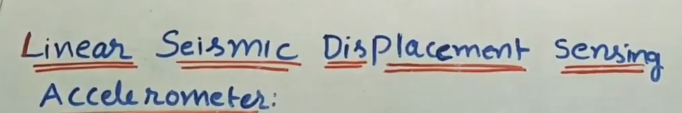 Linear Seismic Displacement Sensing
Accelerometer: